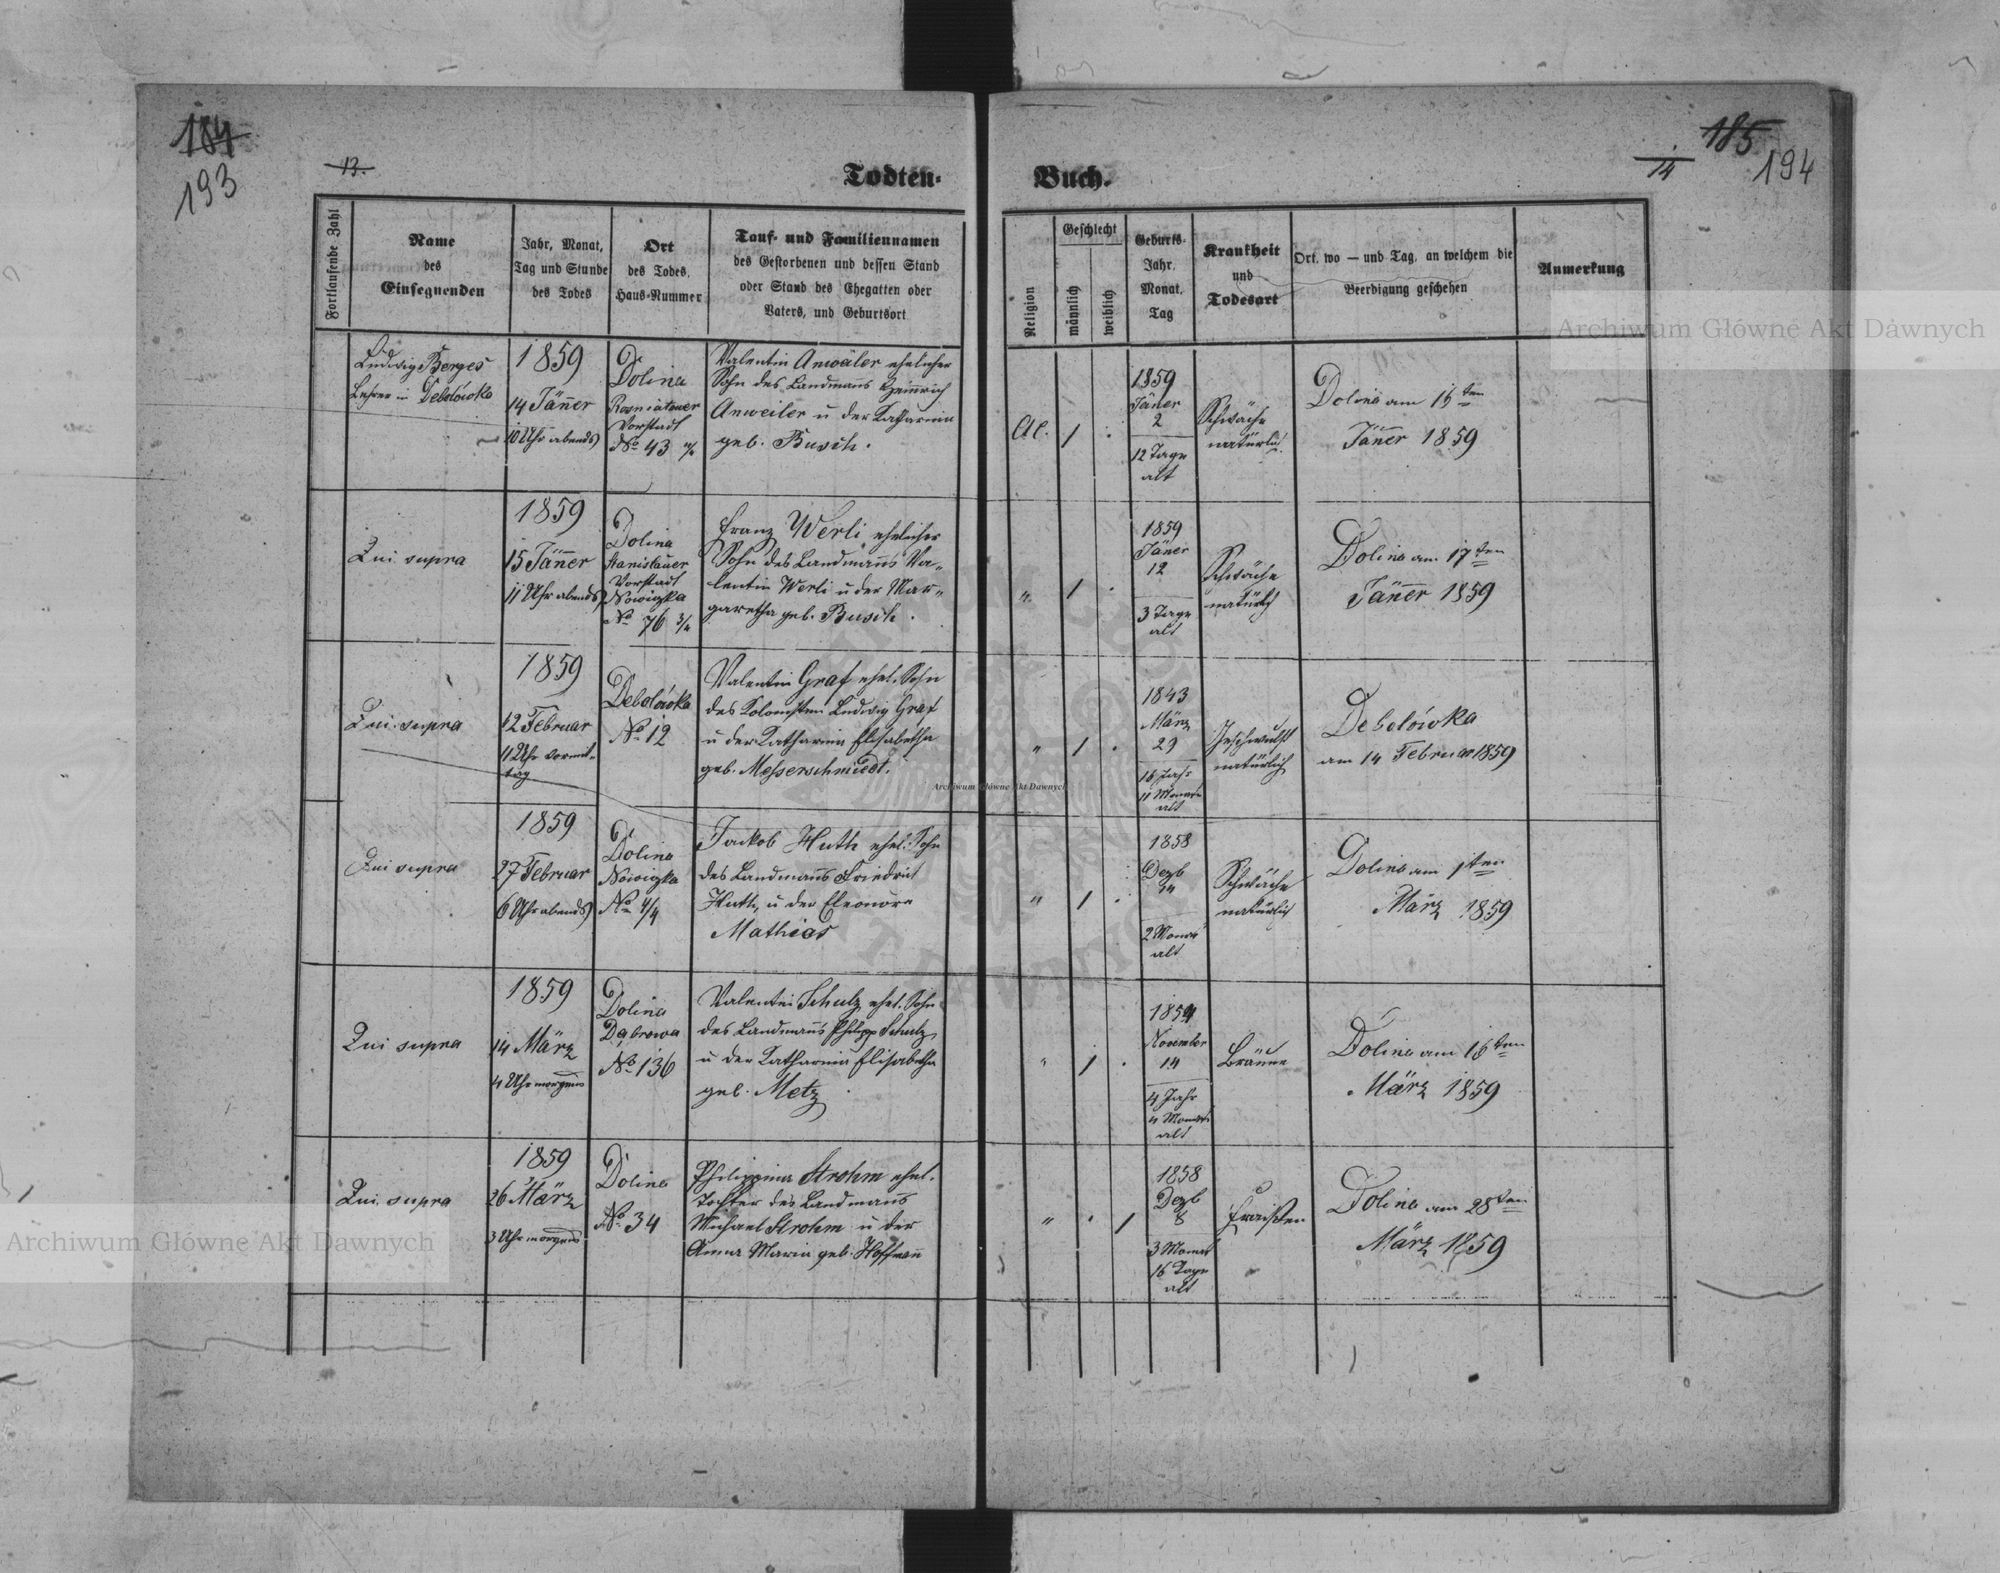 184
193
13.
Todten-
Buch.
185
14
194
Fortlaufende Zahl
Name
des
Einsegnenden
Jahr, Monat,
Tag und Stunde
des Todes
Ort
des Todes,
Haus-Nummer
Tauf- und Familiennamen
des Gestorbenen und dessen Stand
oder Stand des Ehegatten oder
Vaters, und Geburtsort
Religion
Geschlecht
männlich
weiblich
Geburts-
Jahr,
Monat,
Tag
Krankheit
und
Todesart
Ort, wo — und Tag, an welchem die
Beerdigung geschehen
Anmerkung
Ludwig Berges
Lehrer in Debolówka
1859
14 Jäner
10 Uhr abends
Dolina
Rosniatower
Vorstadt
No 43
Valentin Anwäler ehelicher
Sohn des Landmans Heinrich
Anweiler u der Katharina
geb. Busch.
AC.
1
1859
Jäner
2
12 Tage
alt
Schwäche
natürlich
Dolina am 16ten
Jäner 1859
Qui supra
1859
15 Jäner
11 Uhr abends
Dolina
Stanislauer
Vorstadt
Nowizka
No 76 3/4
Franz Werli ehelicher
Sohn des Landmans Va-
lentin Werli u der Mar-
garetha geb. Busch.
"
1
1859
Jäner
12
3 Tage
alt
Schwäche
natürlich
Dolina am 17ten
Jäner 1859
Qui supra
1859
12 Februar
11 Uhr vormit-
tag
Debolówka
No 12
Valentin Graf ehel. Sohn
des Kolonisten Ludwig Graf
u der Katharina Elisabetha
geb. Messerschmiedt.
"
1
1843
März
29
16 Jahr
11 Monate
alt
Geschwulst
natürlich
Debolówka
am 14 Februar 1859
Qui supra
1859
27 Februar
6 Uhr abends
Dolina
Nowizka
No 4/4
Jackob Huth ehel. Sohn
des Landmans Friedrich
Huth, u der Eleonore
Mathias
"
1
1858
Dezb
24
2 Monat
alt
Schwäche
natürlich
Dolina am 1ten
März 1859
Qui supra
1859
14 März
4 Uhr morgens
Dolina
Dąbrowa
No 136
Valentin Schulz ehel. Sohn
des Landmans Philipp Schulz
u der Katharina Elisabetha
geb. Metz
"
1
1854
November
14
4 Jahr
4 Monate
alt
Bräune
Dolina am 16ten
März 1859
Qui supra
1859
26 März
3 Uhr morgens
Dolina
No 34
Philippina Strohm ehel.
Tochter des Landmans
Michael Strohm u der
Anna Maria geb. Hoffman
"
1
1858
Dezb
8
3 Monat
16 Tage
alt
Fraißen
Dolina am 28ten
März 1859
Archiwum Główne Akt Dawnych
Archiwum Główne Akt Dawnych
Archiwum Główne Akt Dawnych